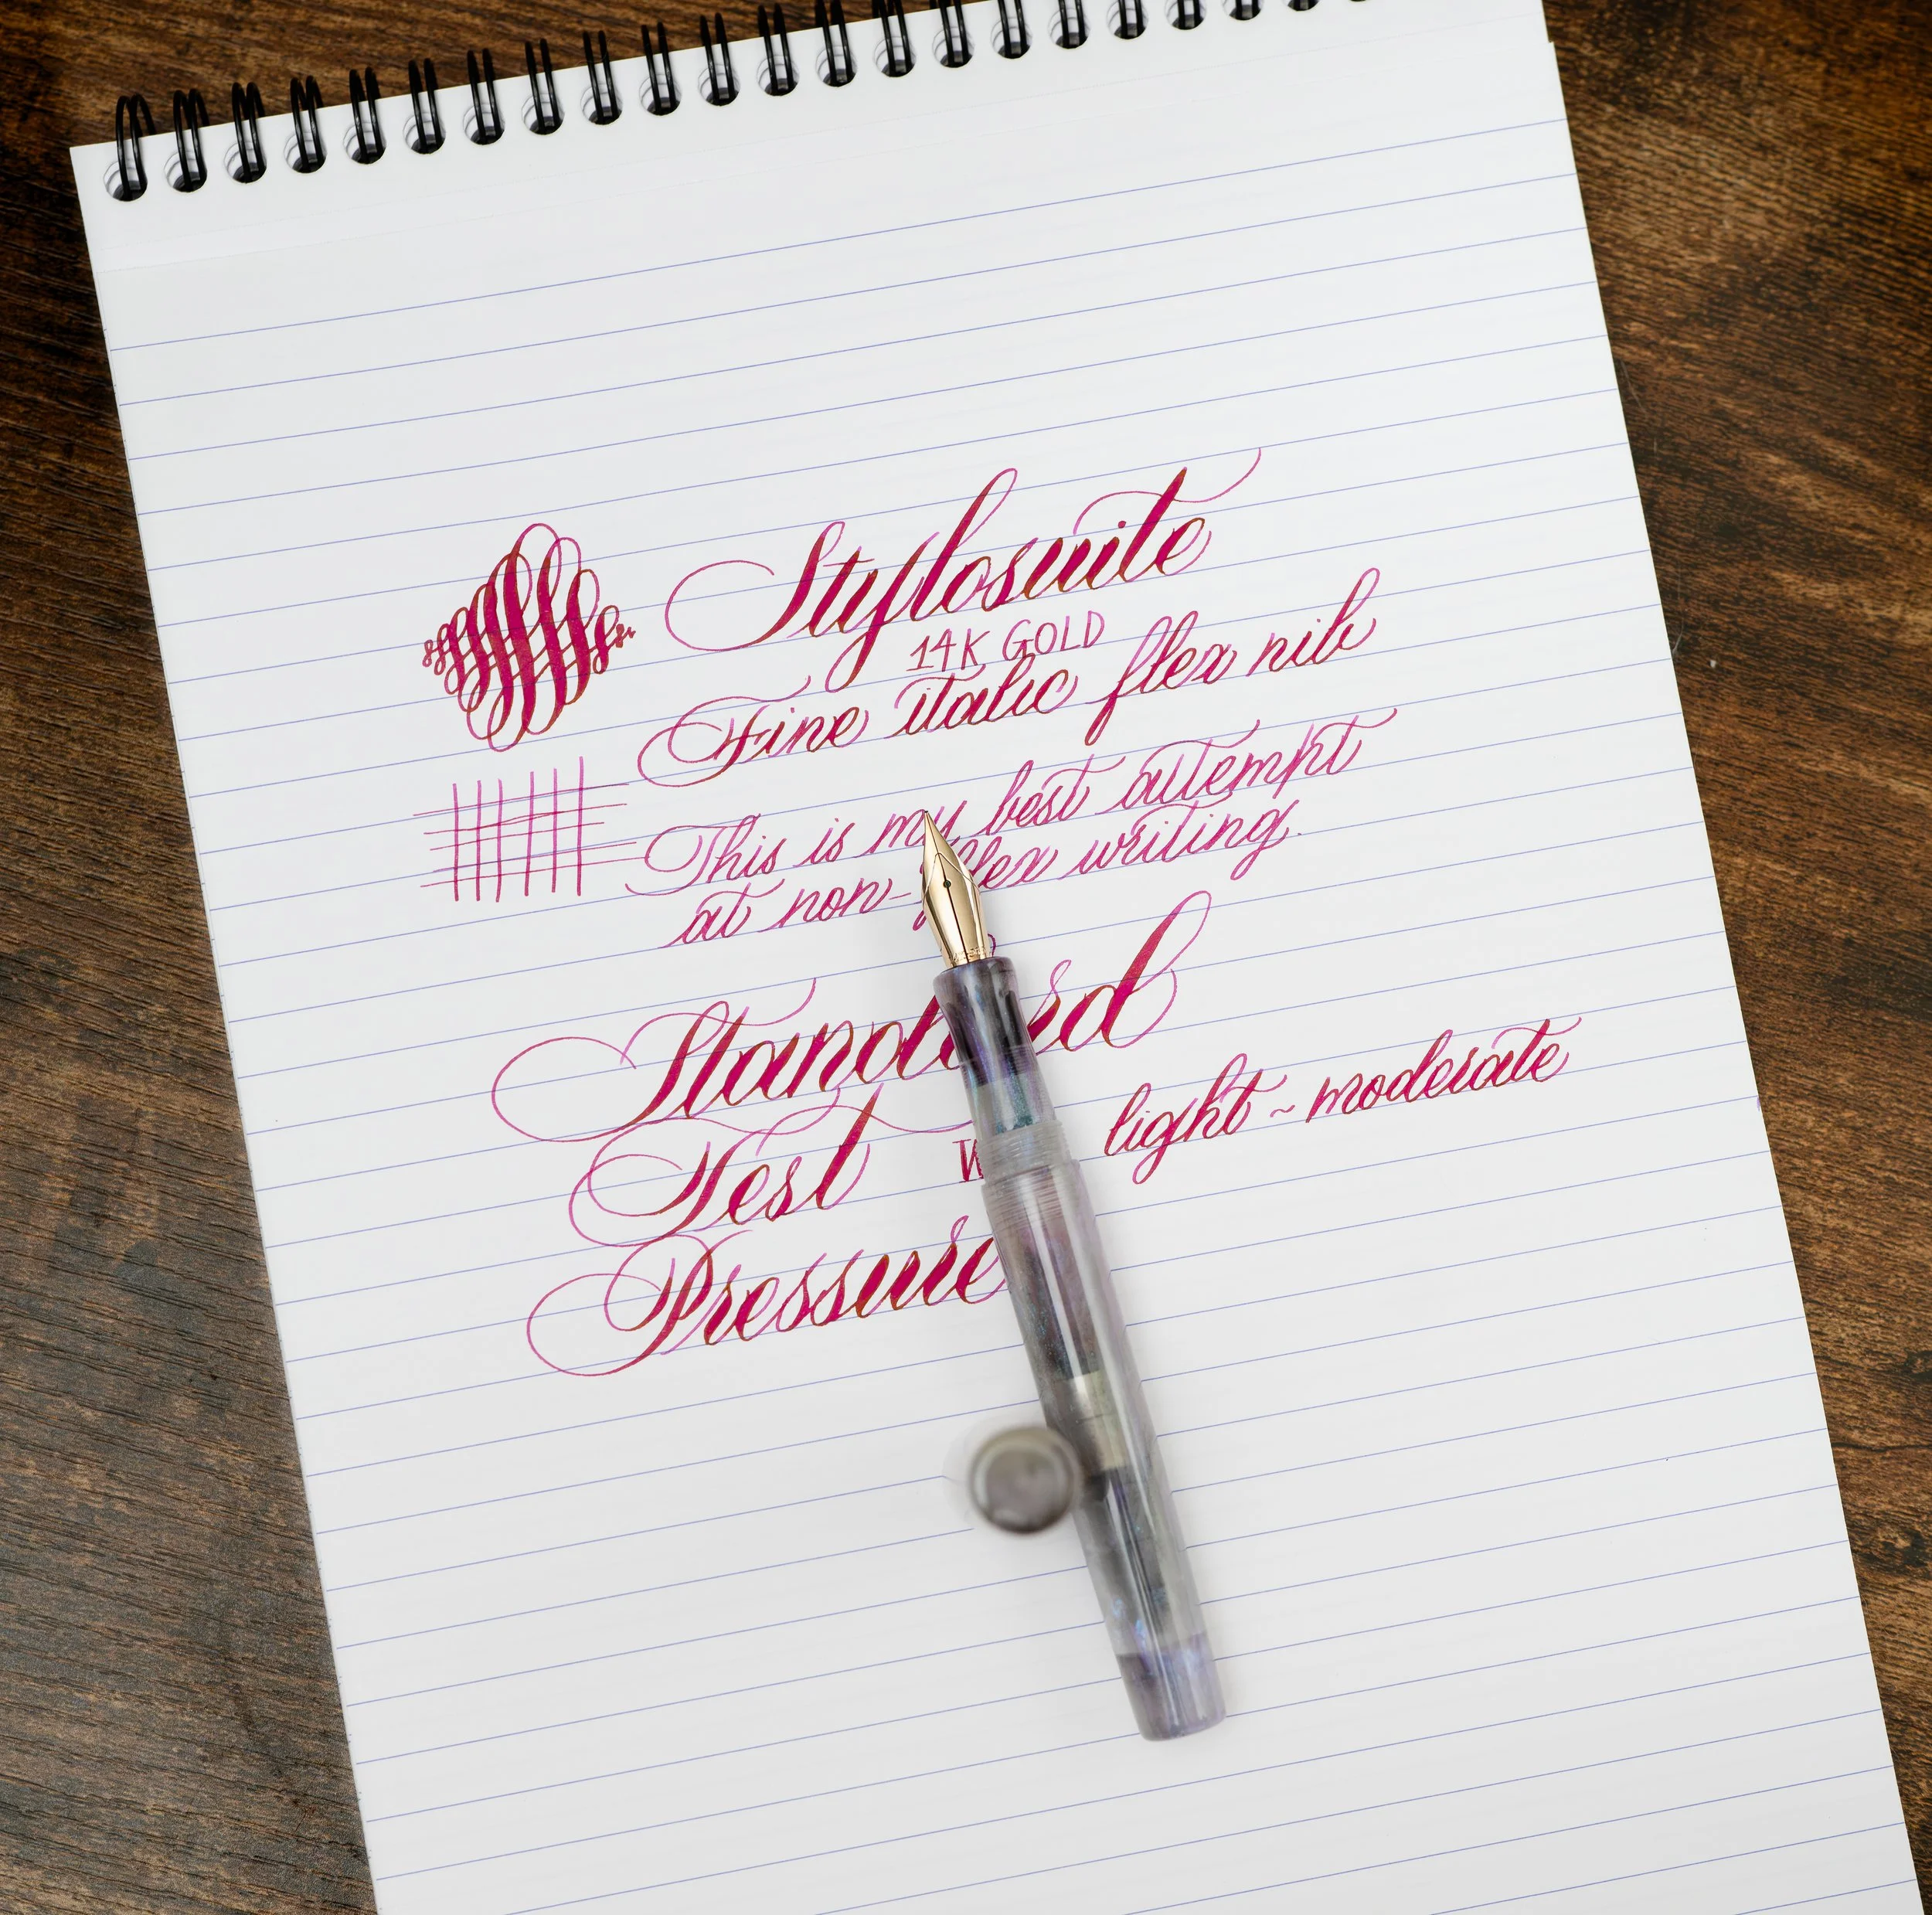 Stylosuite
14K GOLD
Fine italic flex nib
This is my best attempt
at non-flex writing.
Standard
Test
light ~ moderate
Pressure